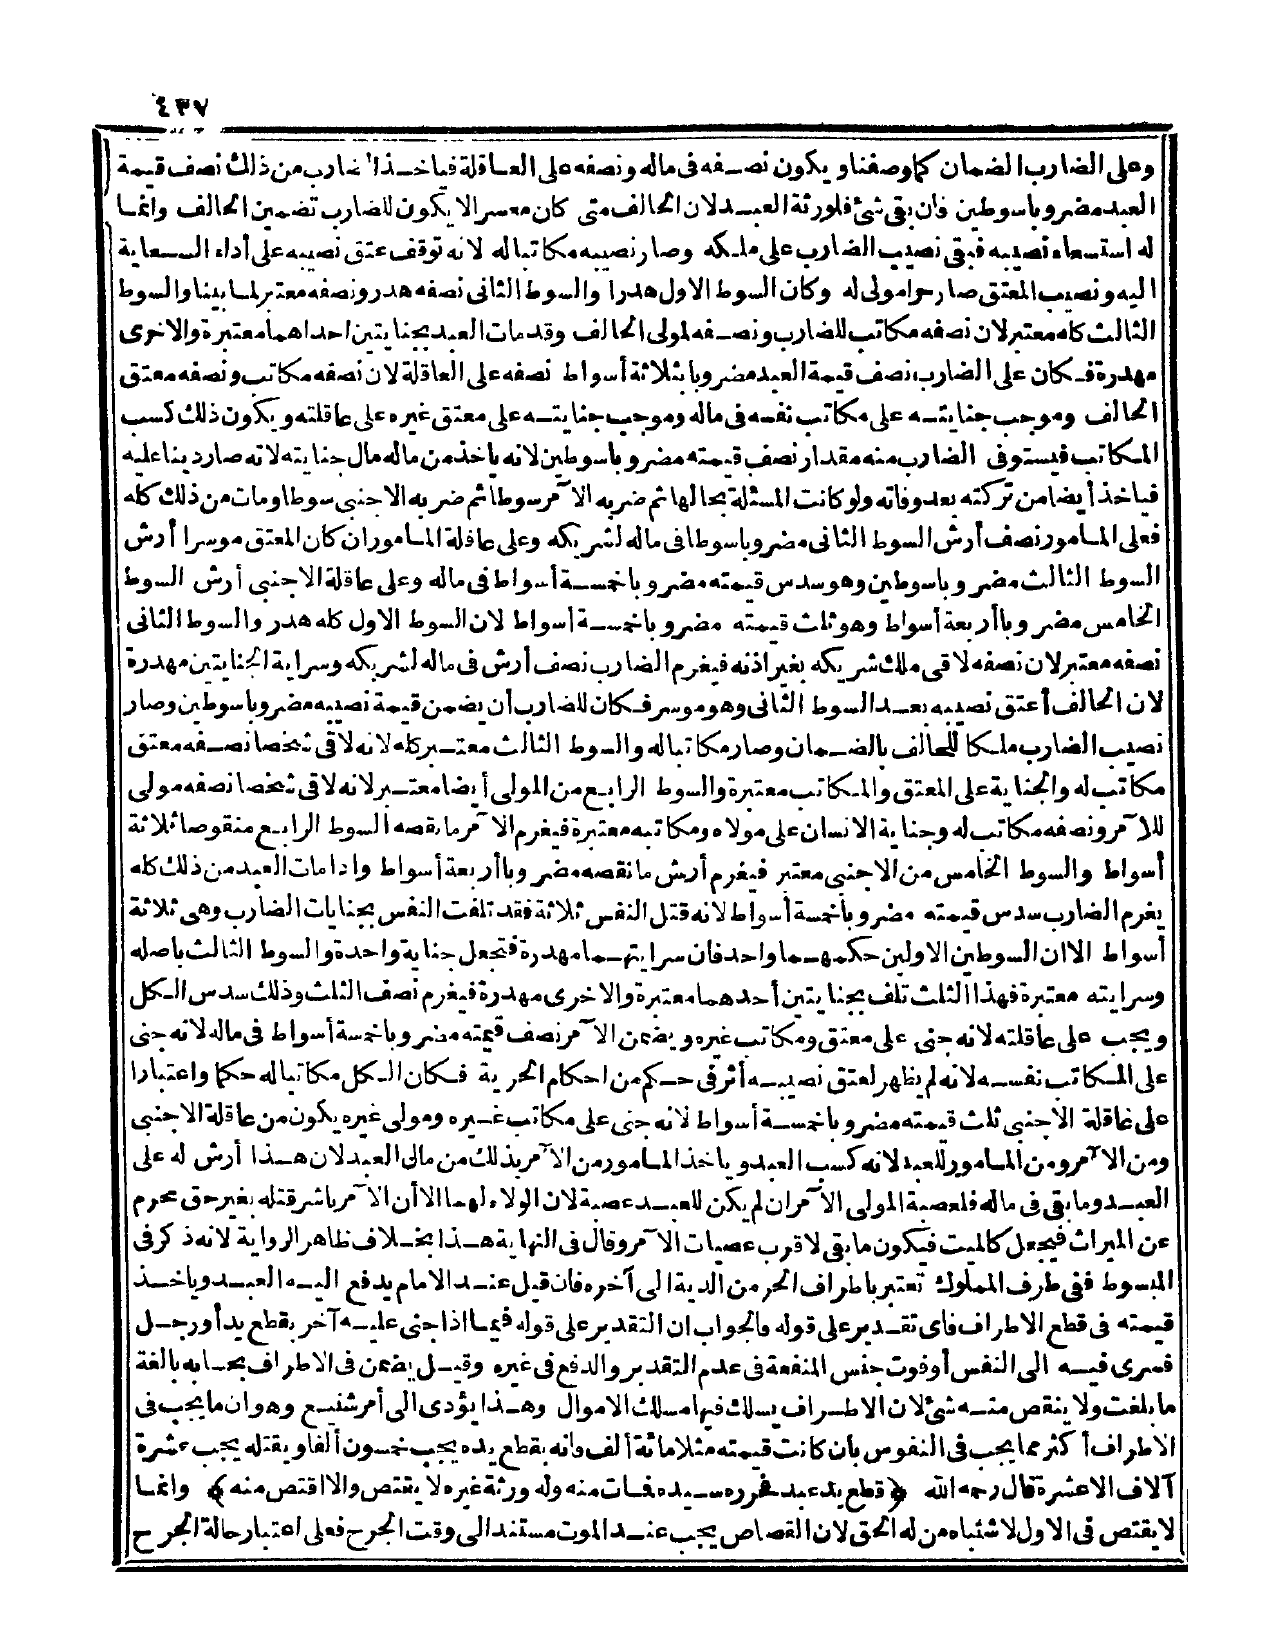 ٤٣٧
وعلى الضارب الضمان كما وصفنا ويكون نصفه فى ماله ونصفه على العاقلة فيأخذ الضارب من ذلك نصف قيمة
العبد مضروبا سوطين فان بقى شئ فلورثة العبد لان الحالف متى كان معسرا لا يكون للضارب تضمين الحالف وانما
له استسعاء نصيبه فبقى نصيب الضارب على ملكه وصار نصيبه مكاتبا له لانه توقف عتق نصيبه على أداء السعاية
اليه ونصيب المعتق صار حرا مولى له وكان السوط الاول هدرا والسوط الثانى نصفه هدر ونصفه معتبر لما بينا والسوط
الثالث كله معتبر لان نصفه مكاتب للضارب ونصفه لمولى الحالف وقد مات العبد بجنايتين احداهما معتبرة والاخرى
مهدرة فكان على الضارب نصف قيمة العبد مضروبا بثلاثة أسواط نصفه على العاقلة لان نصفه مكاتب ونصفه معتق
الحالف وموجب جنايته على مكاتب نفسه فى ماله وموجب جنايته على معتق غيره على عاقلته ويكون ذلك كسب
المكاتب فيستوفى الضارب منه مقدار نصف قيمته مضروبا سوطين لانه يأخذ من ماله مال جنايته لانه صار دينا عليه
فيأخذ أيضا من تركته بعد وفاته ولو كانت المسئلة بحالها ثم ضربه الآمر سوطا ثم ضربه الاجنبى سوطا ومات من ذلك كله
فعلى المأمور نصف أرش السوط الثانى مضروبا سوطا فى ماله لشريكه وعلى عاقلة المأمور ان كان المعتق موسرا أرش
السوط الثالث مضروبا سوطين وهو سدس قيمته مضروبا خمسة أسواط فى ماله وعلى عاقلة الاجنبى أرش السوط
الخامس مضروبا أربعة أسواط وهو ثلث قيمته مضروبا خمسة أسواط لان السوط الاول كله هدر والسوط الثانى
نصفه معتبر لان نصفه لاقى ملك شريكه بغير اذنه فيغرم الضارب نصف أرش فى ماله لشريكه وسراية الجنايتين مهدرة
لان الحالف أعتق نصيبه بعد السوط الثانى وهو موسر فكان للضارب أن يضمن قيمة نصيبه مضروبا سوطين وصار
نصيب الضارب ملكا للحالف بالضمان وصار مكاتبا له والسوط الثالث معتبر كله لانه لاقى شخصا نصفه معتق
مكاتب له والجناية على المعتق والمكاتب معتبرة والسوط الرابع من المولى أيضا معتبر لانه لاقى شخصا نصفه مولى
للآمر ونصفه مكاتب له وجناية الانسان على مولاه ومكاتبه معتبرة فيغرم الآمر ما نقصه السوط الرابع منقوصا ثلاثة
أسواط والسوط الخامس من الاجنبى معتبر فيغرم أرش ما نقصه مضروبا أربعة أسواط واذا مات العبد من ذلك كله
يغرم الضارب سدس قيمته مضروبا خمسة أسواط لانه قتل النفس ثلاثة فقد تلفت النفس بجنايات الضارب وهى ثلاثة
أسواط الا ان السوطين الاولين حكمهما واحد فان سرايتهما مهدرة فتجعل جناية واحدة والسوط الثالث باصله
وسرايته معتبرة فهذا الثلث تلف بجنايتين أحدهما معتبرة والاخرى مهدرة فيغرم نصف الثلث وذلك سدس الكل
ويجب على عاقلته لانه جنى على معتق ومكاتب غيره ويضمن الآمر نصف قيمته مضروبا خمسة أسواط فى ماله لانه جنى
على المكاتب نفسه لانه لم يظهر لعتق نصيبه أثر فى حكم من احكام الحرية فكان الكل مكاتبا له حكما واعتبارا
على عاقلة الاجنبى ثلث قيمته مضروبا خمسة أسواط لانه جنى على مكاتب غيره ومولى غيره يكون من عاقلة الاجنبى
ومن الآمر ومن المأمور للعبد لانه كسب العبد ويأخذ المأمور من الآمر بذلك من مال العبد لان هذا أرش له على
العبد وما بقى فى ماله فلعصبة المولى الآمر ان لم يكن للعبد عصبة لان الولاء لهما الا أن الآمر باشر قتله بغير حق محرم
عن الميراث فيجعل كالميت فيكون ما بقى لاقرب عصبات الآمر وقال فى النهاية هذا بخلاف ظاهر الرواية لانه ذكر فى
المبسوط ففى طرف المملوك تعتبر باطراف الحر من الدية الى آخره فان قيل عند الامام يدفع اليه العبد ويأخذ
قيمته فى قطع الاطراف فاى تقدير على قوله فالجواب ان التقدير على قوله فيما اذا جنى عليه آخر بقطع يد أو رجل
فسرى فيه الى النفس أو فوت جنس المنفعة فى عدم التقدير والدفع فى غيره وقيل يضمن فى الاطراف بحسابه بالغة
ما بلغت ولا ينقص منه شئ لان الاطراف يسلك فيها مسلك الاموال وهذا يؤدى الى أمر شنيع وهو ان ما يجب فى
الاطراف أكثر مما يجب فى النفوس بأن كانت قيمته مثلا مائة ألف فانه بقطع يده يجب خمسون ألفا وبقتله يجب عشرة
آلاف الا عشرة قال رحمه الله ﴿قطع يد عبد فحرره سيده فمات منه وله ورثة غيره لا يقتص والا اقتص منه﴾ وانما
لا يقتص فى الاول لاشتباه من له الحق لان القصاص يجب عند الموت مستندا الى وقت الجرح فعلى اعتبار حالة الجرح